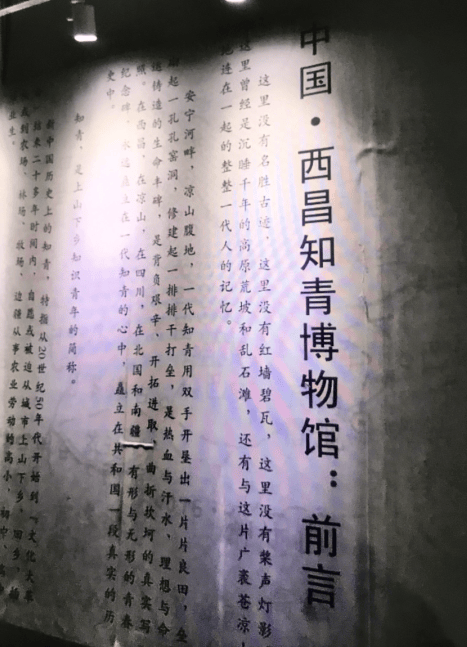 中国·西昌知青博物馆：前言
这里没有名胜古迹，这里没有红墙碧瓦，这里没有桨声灯影，
这里曾经是沉睡千年的高原荒坡和乱石滩，还有与这片广袤苍凉土
地连在一起的整整一代人的记忆。
安宁河畔，凉山腹地，一代知青用双手开垦出一片片良田，垒
砌起一孔孔窑洞，修建起一排排干打垒，是热血与汗水、理想与命
运铸造的生命丰碑，是背负艰辛、开拓进取、曲折坎坷的真实写
照。在西昌，在凉山，在四川，在北国和南疆，有形与无形的青春
纪念碑，永远矗立在一代知青的心中，矗立在共和国一段真实的历
史中。
知青，是上山下乡知识青年的简称。
新中国历史上的知青，特指从20世纪50年代开始到“文化大革
结束二十多年时间内，自愿或被迫从城市上山下乡、回乡、插
或到农场、林场、牧场、边疆从事农业劳动的高小、初中、高
业生。